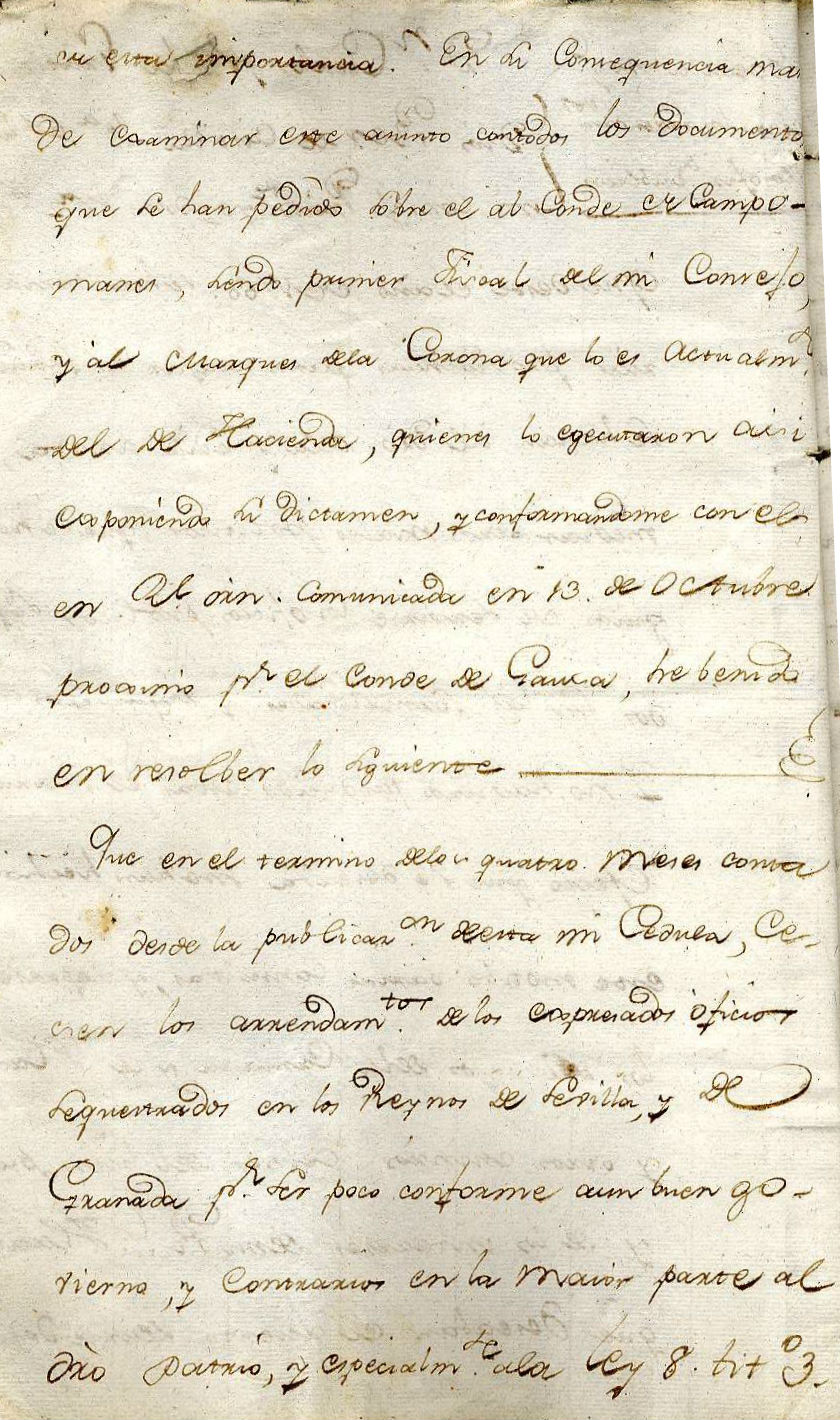 de esta importancia. En su Consequencia man
de examinar este asunto contodos los documentos
que se han pedido sobre el al Conde de Campo-
manes, siendo primer Fiscal del mi Consejo,
y al Marques dela Corona que lo es Actualmte.
del de Hacienda, quienes lo egecutaron asi
exponiendo su dictamen, y conformandome con el
en Rl. orn. Comunicada en 13. de Octubre
proximo pr. el Conde de Gausa, he benido
en resolber lo siguiente
Que en el termino delos quatro Meses conta
dos desde la publicacon. desta mi Cedula, Ce-
sen los arrendamtos. de los expresados oficios
sequestrados en los Reynos de Sevilla, y de
Granada pr. ser poco conforme aun buen go-
vierno, y Contrarios en la Maior parte al
dro patrio, y especialmte. ala Ley 8. titº 3.